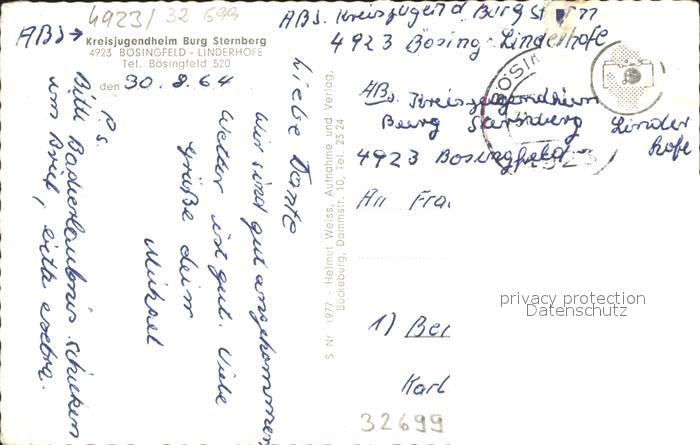 4923/ 32 699
ABS→
Kreisjugendheim Burg Sternberg
4923 BÖSINGFELD - LINDERHOFE
Tel. Bösingfeld 520
den 30. 8. 64
ABS. Kreisjugend Burg
4923 Bösing- Linderhofe
ABs. Kreisjugendheim
Burg Sternberg Linder
hofe
4923 Bosingfeld
BÖSIN
4923
An Frau
1) Ber
Karl
32699
Liebe Tante
Wir sind gut angekommen,
Wetter ist gut. Viele
Grüße dein
Michael
Ps.
Bitte Badeerlaubnis schicken
im Brief, bitte extra.
S Nr 1977 - Helmut Weiss, Aufnahme und Verlag,
Bückeburg, Dammstr. 10, Tel. 23 24
privacy protection
Datenschutz